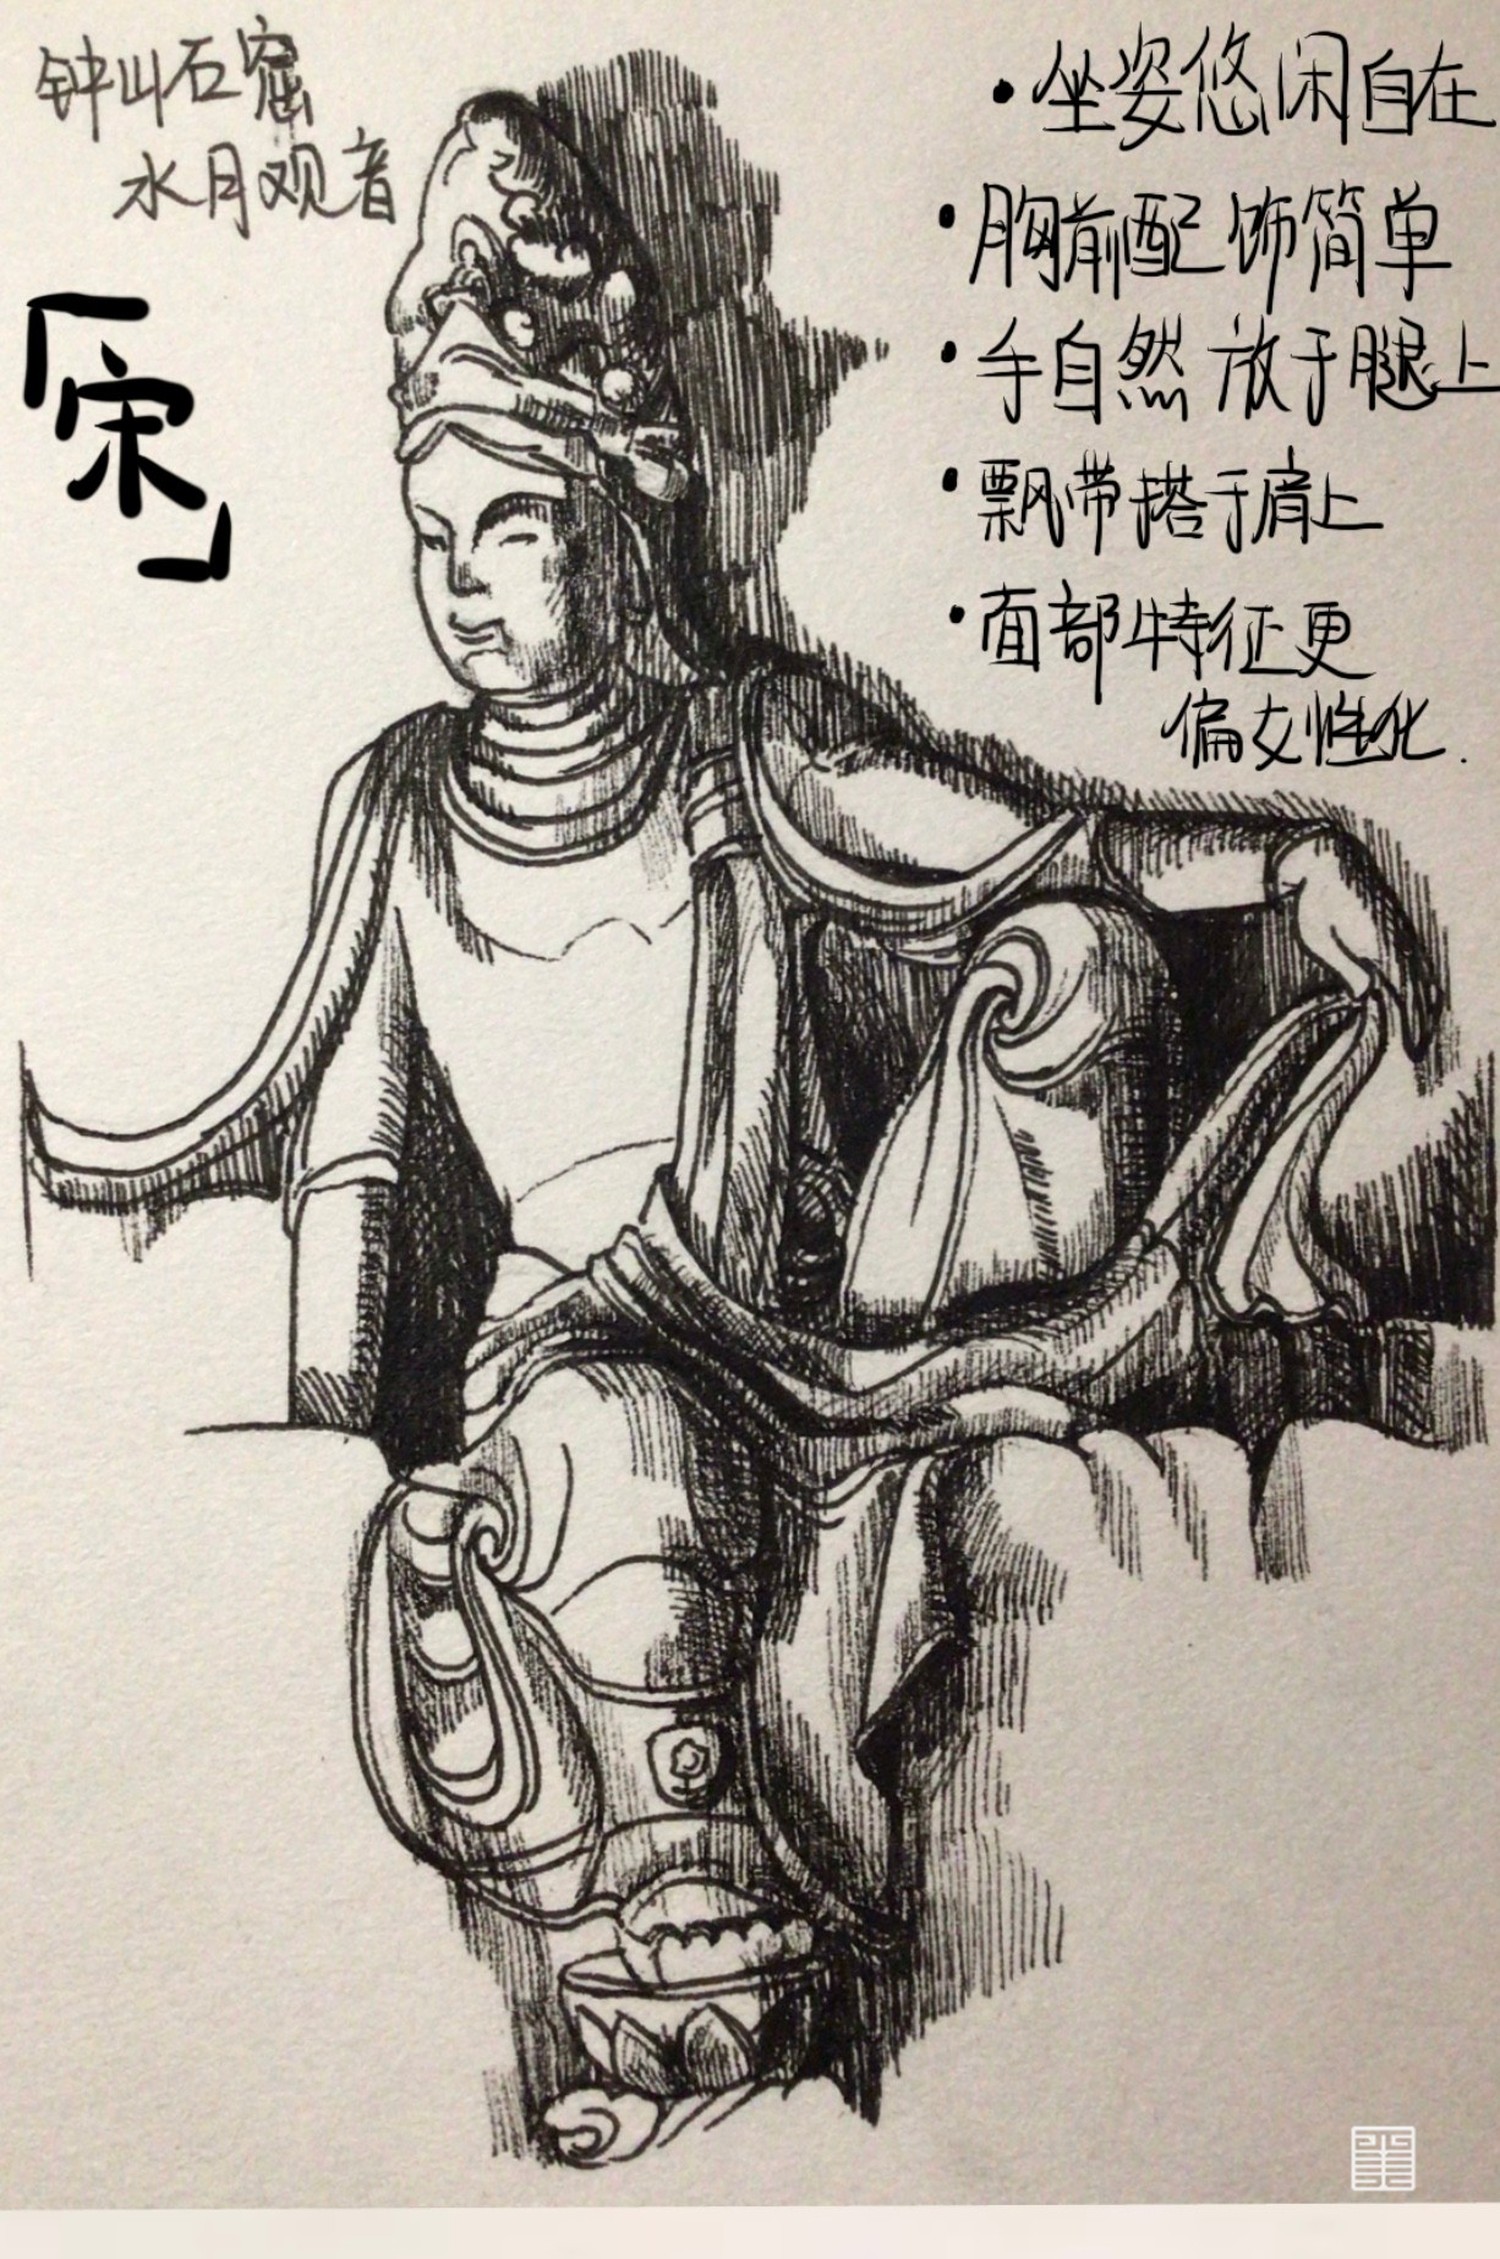 钟山石窟
水月观音
「宋」
·坐姿悠闲自在
·胸前配饰简单
·手自然放于腿上
·飘带搭于肩上
·面部特征更
偏女性化.